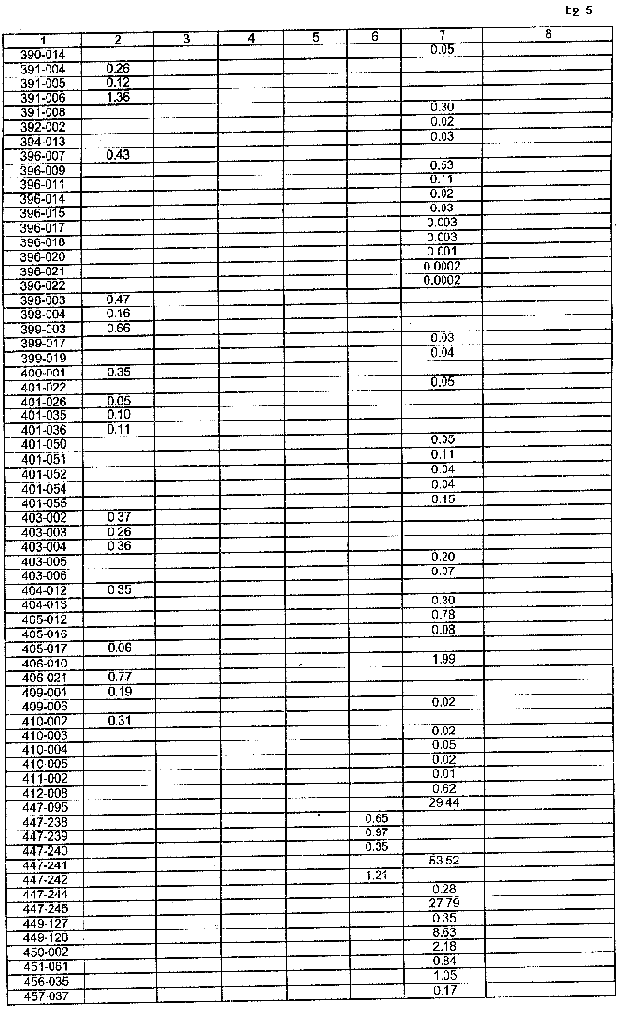 tg 5
1 2 3 4 5 6 7 8
390-014 0.05
391-004 0.26
391-005 0.12
391-006 1.36
391-008 0.30
392-002 0.02
394-013 0.03
396-007 0.43
396-009 0.53
396-011 0.11
396-014 0.02
396-015 0.03
396-017 0.003
396-018 0.003
396-020 0.001
396-021 0.0002
396-022 0.0002
398-003 0.47
398-004 0.16
399-003 0.66
399-017 0.03
399-019 0.04
400-001 0.35
401-022 0.05
401-026 0.05
401-035 0.10
401-036 0.11
401-050 0.05
401-051 0.11
401-052 0.04
401-054 0.04
401-055 0.15
403-002 0.37
403-003 0.26
403-004 0.36
403-005 0.20
403-006 0.07
404-012 0.35
404-013 0.30
405-012 0.78
405-016 0.08
405-017 0.06
406-010 1.99
406-021 0.77
409-001 0.19
409-006 0.02
410-002 0.31
410-003 0.02
410-004 0.05
410-005 0.02
411-002 0.01
412-008 0.62
447-095 29.44
447-238 0.65
447-239 0.97
447-240 0.35
447-241 53.52
447-242 1.21
447-244 0.28
447-245 27.79
449-127 0.35
449-128 8.63
450-002 2.18
451-061 0.84
456-035 1.05
457-037 0.17